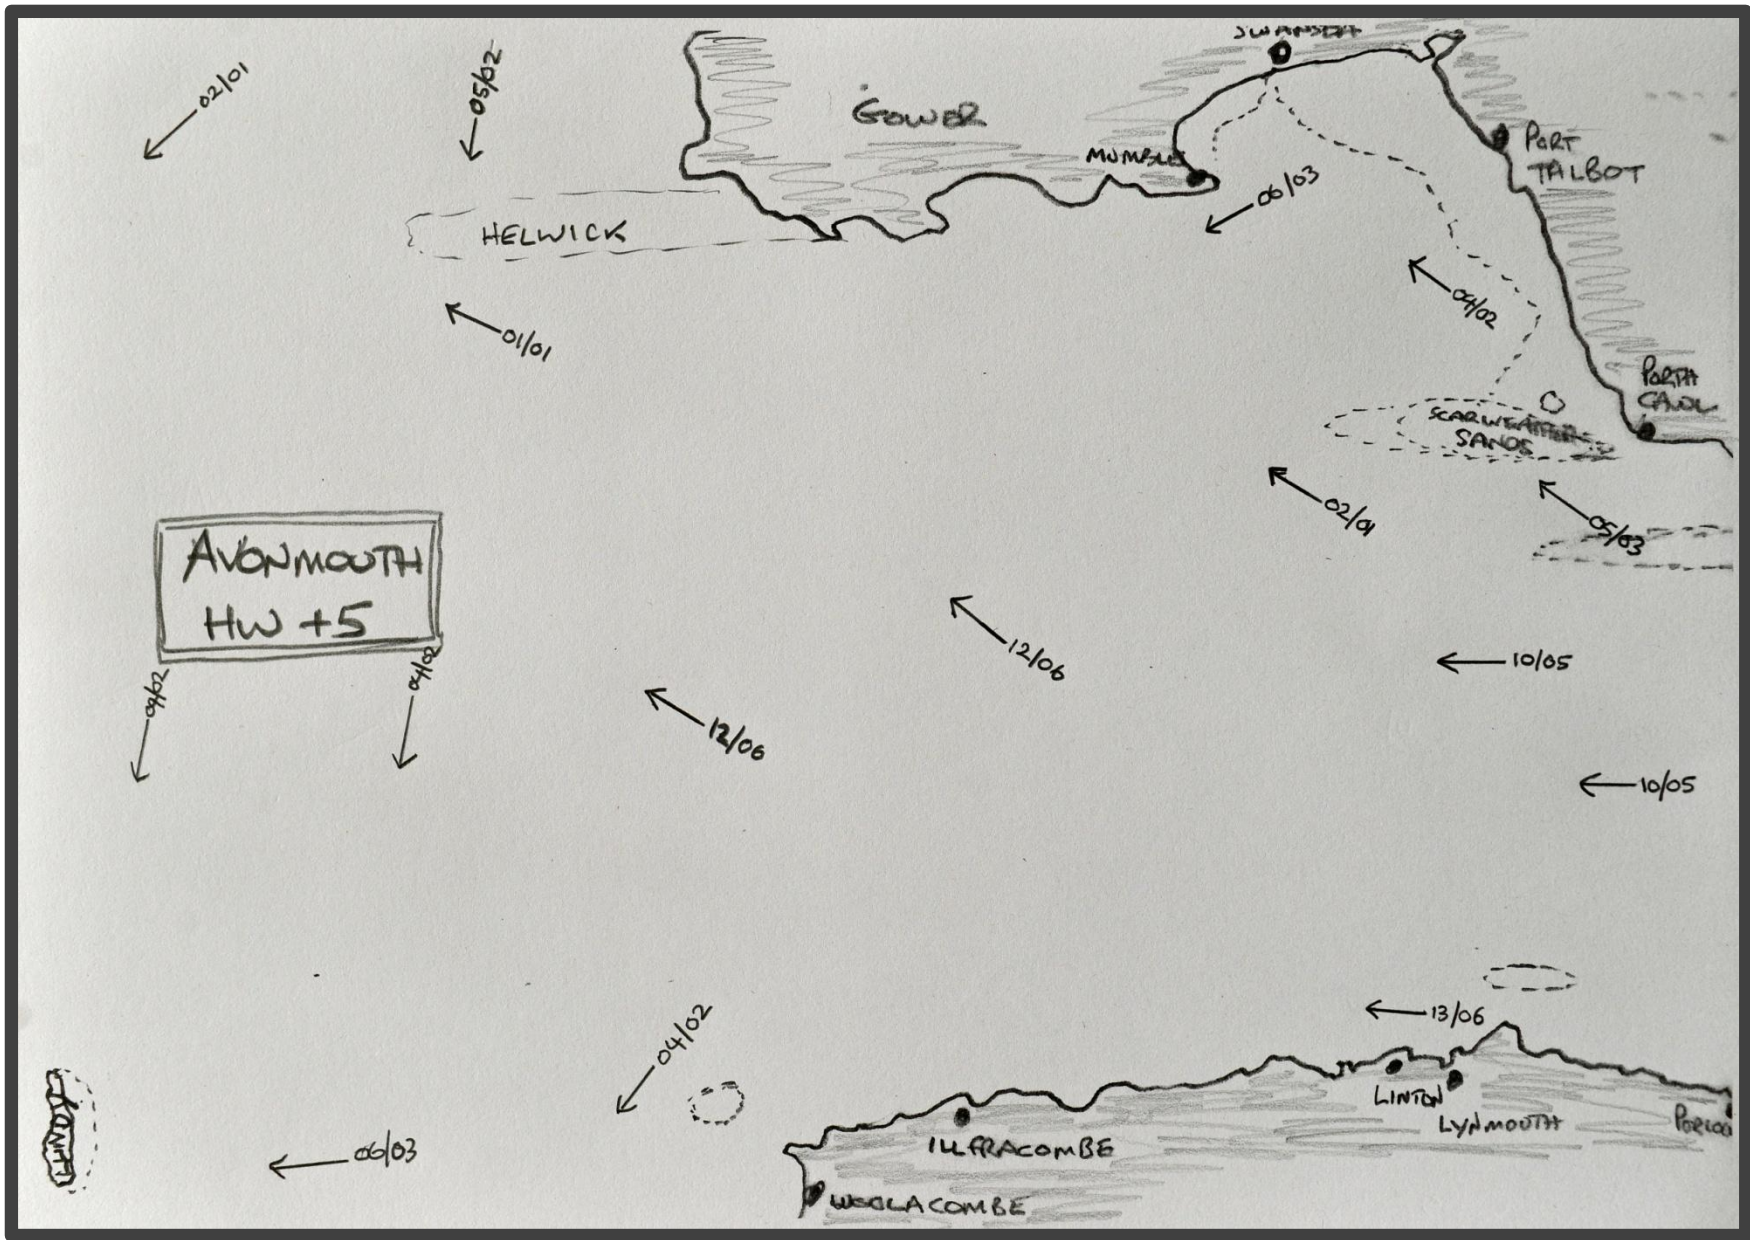 SWANSEA
02/01
05/02
GOWER
PORT
TALBOT
MUMBLE
06/03
HELWICK
04/02
01/01
PORTH
CAWL
SCARWEATHER
SANDS
02/01
05/03
AVONMOUTH
HW +5
12/06
10/05
04/02
12/06
10/05
13/06
04/02
LINTON
LYNMOUTH
LUNDY
ILLFRACOMBE
06/03
WOOLACOMBE